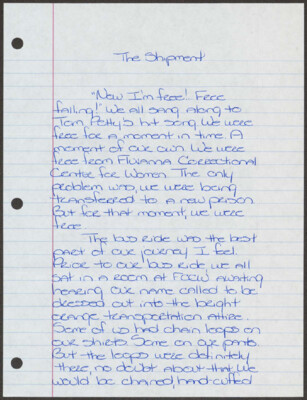 The Shipment
"Now I'm free! Free
falling!" We all sang along to
Tom Petty's hit song. We were
free for a moment in time. A
moment of our own. We were
free from Fluvanna Correctional
Centre for Women. The only
problem was, we were being
transferred to a new prison.
But for that moment, we were
free.
The bus ride was the best
part of our journey I feel.
Prior to our bus ride we all
sat in a room at FCCW awaiting
hearing our name called to be
dressed out into the bright
orange transportation attire.
Some of us had chain loops on
our shirts. Some on our pants.
But the loops were definitely
there, no doubt about that. We
would be chained, hand-cuffed